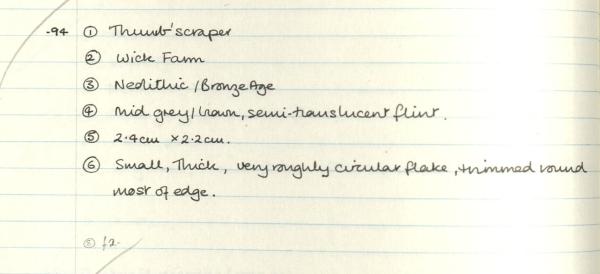 -94 ① Thumb' scraper
② Wick Farm
③ Neolithic / Bronze Age
④ Mid grey / brown, semi-translucent flint.
⑤ 2.4cm × 2.2cm.
⑥ Small, Thick, very roughly circular flake, trimmed round
most of edge.
⑧ f2.